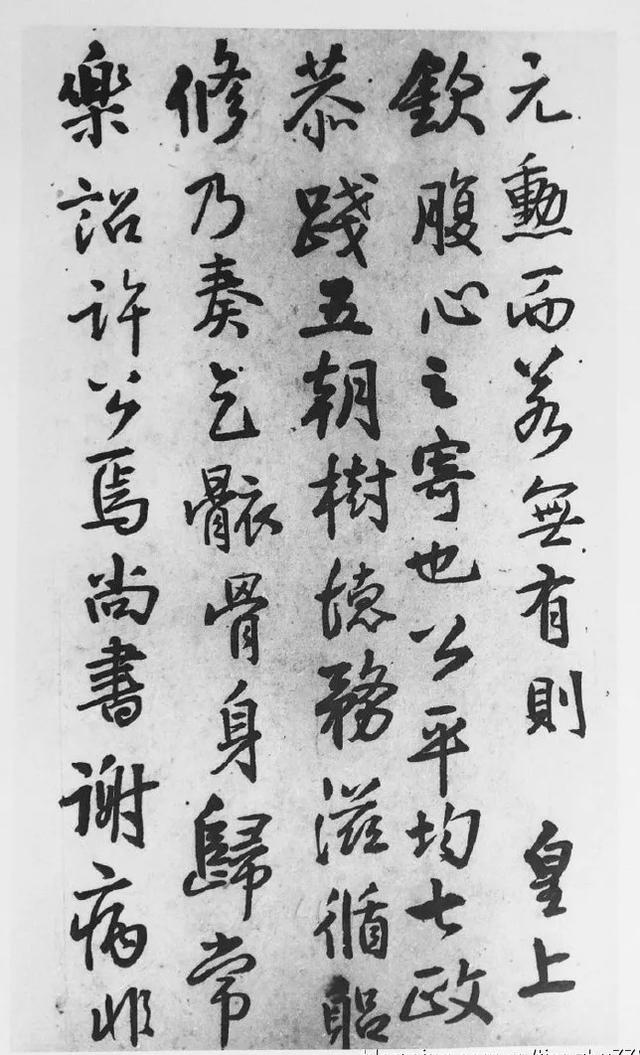 元勳而若無有則 皇上
欽腹心之寄也公平均七政
恭踐五朝樹德務滋循躳
修乃奏乞骸骨身歸常
樂詔許公焉尚書謝病非